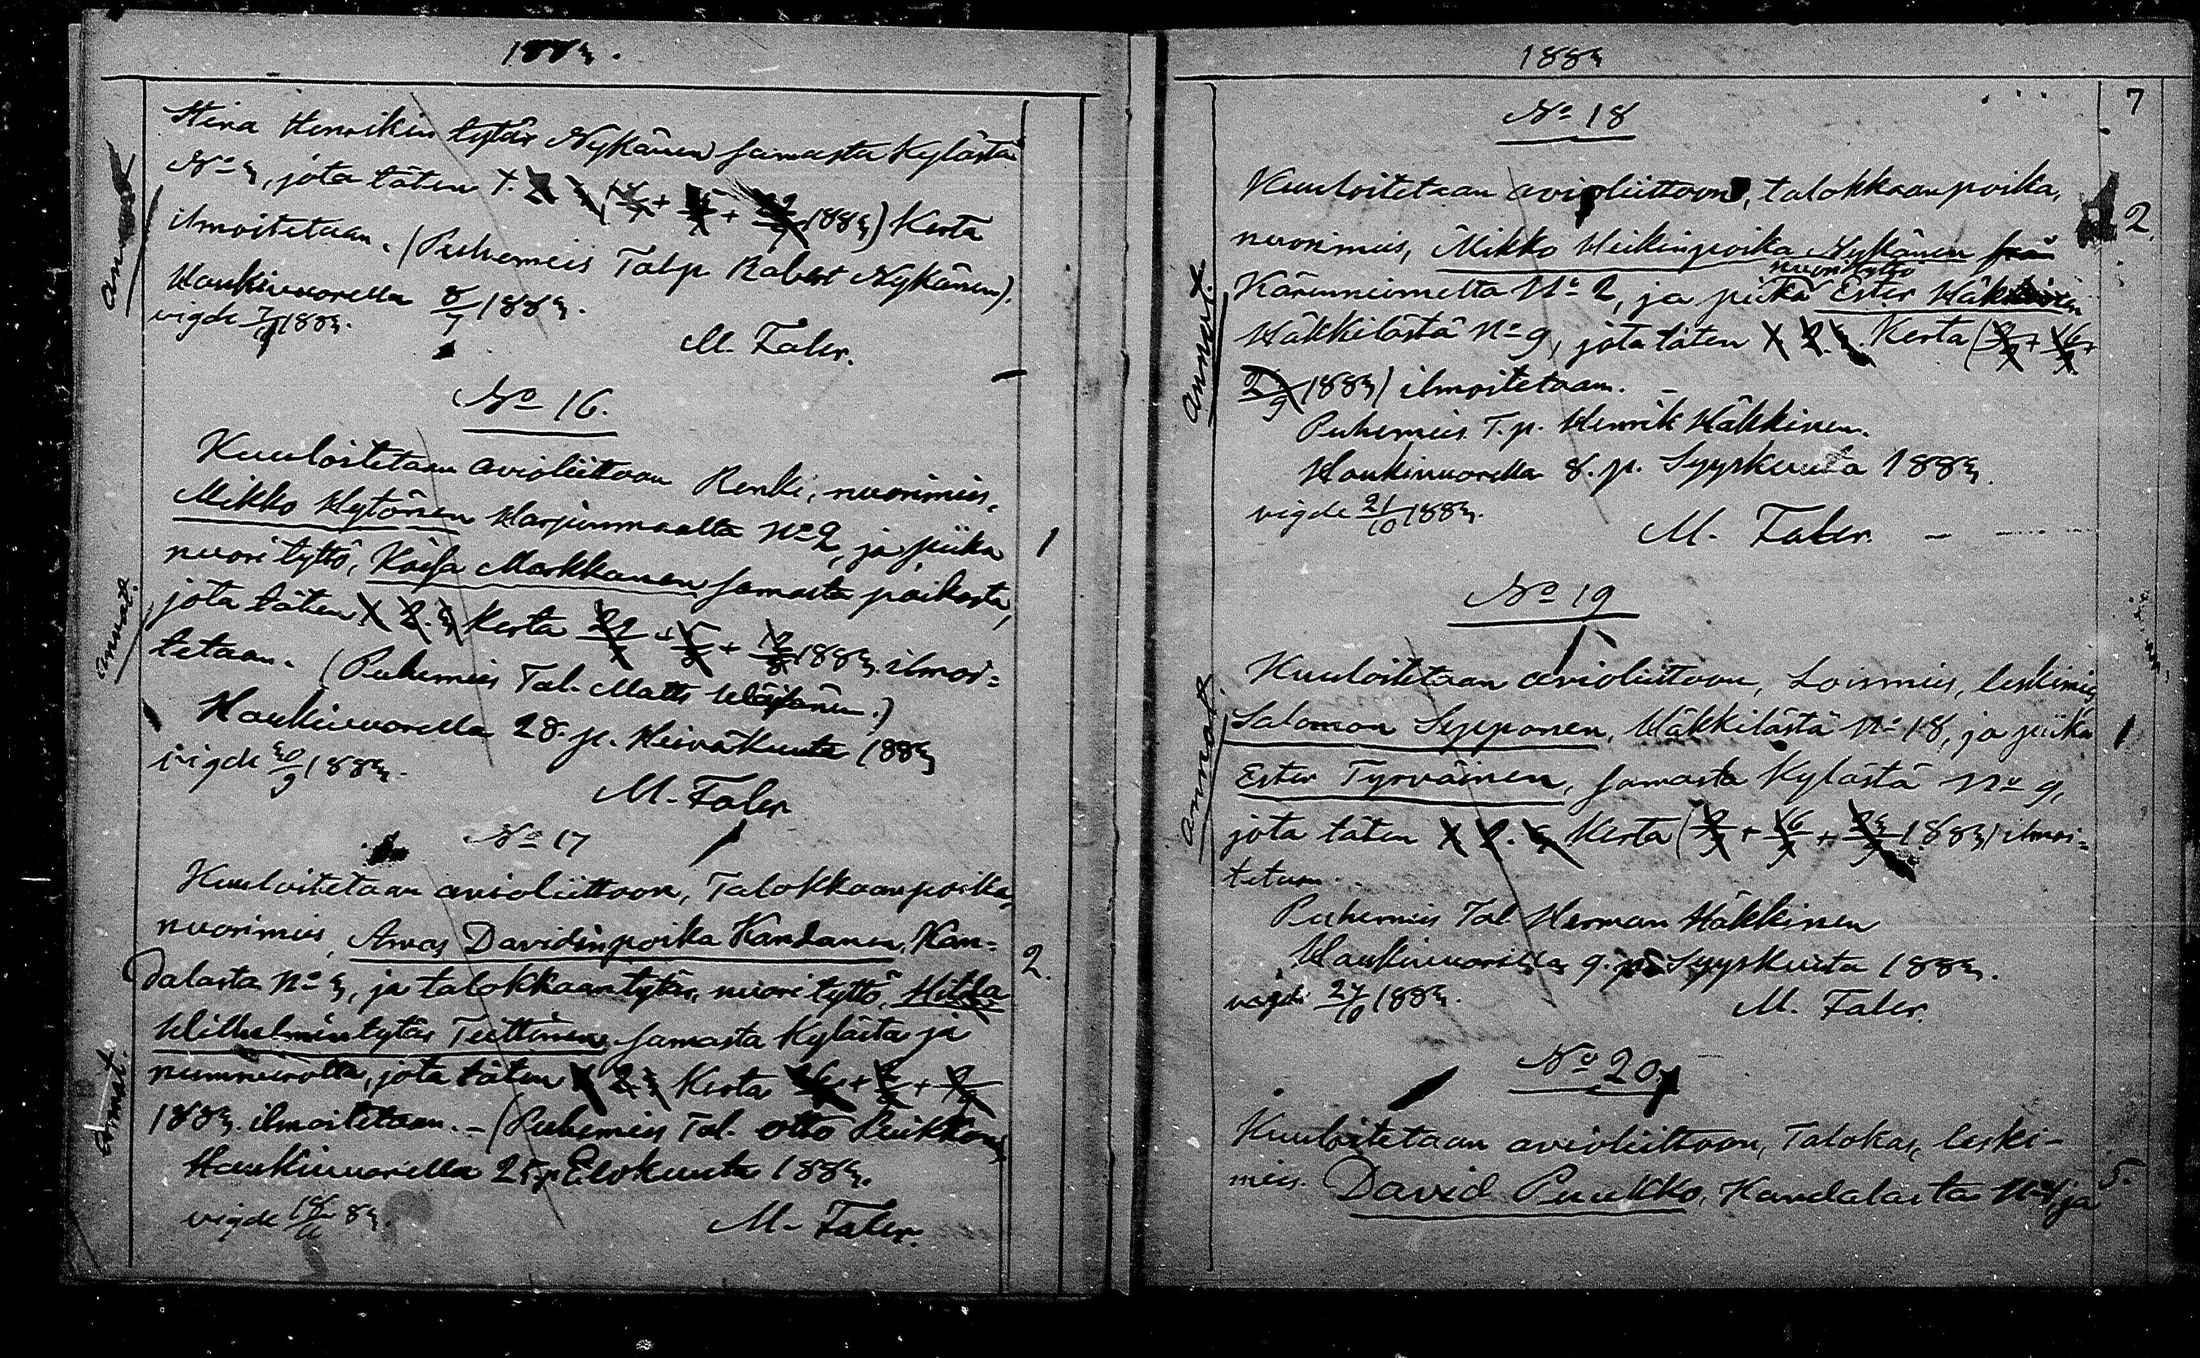 1883.
Stina Henrikin tytär Nykänen samasta Kylästä
No 3, jota täten 1. 2. 3. 1883) Kerta
ilmoitetaan. (Puhemies Talp. Robert Nykänen).
Haukivuorella 8/7 1883.
vigde 1883.
M. Faler.
annot.
No 16.
Kuuloitetaan avioliittoon Renki, nuorimies,
Mikko Hytönen Harjunmaalta No 2, ja piika
nuori tyttö, Kaisa Markkanen samasta paikasta,
jota täten 1. 2. 3. Kerta 29/7 + 5/8 + 12/8 1883. ilmoi=
tetaan. (Puhemies Tal. Matts)
Haukivuorella 28. p. Heinäkuuta 1883
vigde 30/9 1883.
M. Faler
annot.
1
No 17
Kuuloitetaan avioliittoon, Talokkaanpoika,
nuorimies, Davidinpoika Kandanen, Kan=
dalasta No 3, ja talokkaantytär, nuori tyttö, Hilda
Wilhelmintytär Teittinen samasta Kylästä ja
numnerolta, jota täten 1. 2. 3. Kerta 26/8 + 2/9 + 9/9
1883. ilmoitetaan. – (Puhemies Tal. Otto
Haukivuorella 25 p. Elokuuta 1883.
vigde 83.
M. Faler.
annot.
2.
1883
7
No 18
Kuuloitetaan avioliittoon, talokkaanpoika,
nuorimies, Mikko Heikinpoika Nykänen från
nuori tyttö
Kärenniemeltä No 2, ja piika Ester Häkkinen
Häkkilästä No 9, jota täten 1. 2. 3. Kerta (9/9 + 16/9 +
23/9 1883) ilmoitetaan. –
Puhemies T. p. Henrik Häkkinen.
Haukivuorella 8. p. Syyskuuta 1883.
vigde 21/10 1883.
M. Faler.
annot.
2.
No 19
Kuuloitetaan avioliittoon, Loismies, leskimies
Salomon Sepponen, Häkkilästä No 18, ja piika
Ester Tyrväinen, samasta Kylästä No 9,
jota täten 1. 2. 3. Kerta (9/9 + 16/9 + 23/9 1883) ilmoi=
tetaan.
Puhemies Tal Herman Häkkinen
Haukivuorella 9. p. Syyskuuta 1883.
vigde 27/10 1883.
M. Faler.
annot.
1
No 20
Kuuloitetaan avioliittoon, Talokas, leski-
mies. David Puukko, Kandalasta No ja
5.